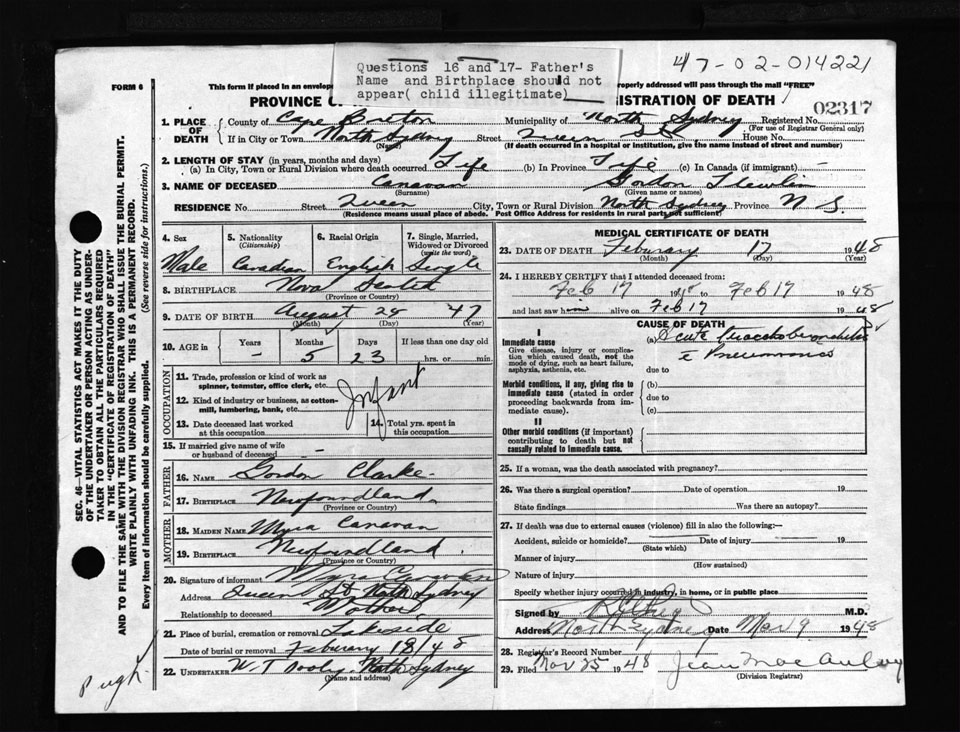 47-02-014221
Questions 16 and 17- Father's
Name and Birthplace should not
appear( child illegitimate)
FORM 6
This form if placed in an envelope properly addressed will pass through the mail "FREE"
PROVINCE OF REGISTRATION OF DEATH
02317
1. PLACE OF DEATH County of Cape Breton Municipality of North Sydney Registered No.
(For use of Registrar General only)
If in City or Town North Sydney Street Queen St House No.
(Name) (If death occurred in a hospital or institution, give the name instead of street and number)
2. LENGTH OF STAY (in years, months and days)
(a) In City, Town or Rural Division where death occurred Life (b) In Province Life (c) In Canada (if immigrant) -
3. NAME OF DECEASED Canavan Gordon Llewlin
(Surname) (Given name or names)
RESIDENCE No Street Queen City, Town or Rural Division North Sydney Province N S.
(Residence means usual place of abode. Post Office Address for residents in rural parts not sufficient)
4. Sex Male
5. Nationality (Citizenship) Canadian
6. Racial Origin English
7. Single, Married, Widowed or Divorced (write the word) Single
8. BIRTHPLACE Nova Scotia
(Province or Country)
9. DATE OF BIRTH August 28 47
(Month) (Day) (Year)
10. AGE in Years - Months 5 Days 23 If less than one day old hrs. or min.
OCCUPATION
11. Trade, profession or kind of work as spinner, teamster, office clerk, etc.
Infant
12. Kind of industry or business, as cotton-mill, lumbering, bank, etc.
13. Date deceased last worked at this occupation
14. Total yrs. spent in this occupation
15. If married give name of wife or husband of deceased -
FATHER
16. Name Gordon Clarke
17. Birthplace Newfoundland
(Province or Country)
MOTHER
18. Maiden Name Myra Canavan
19. Birthplace Newfoundland
(Province or Country)
20. Signature of informant Myra Canavan
Address Queen St North Sydney
Relationship to deceased Mother
21. Place of burial, cremation or removal Lakeside
Date of burial or removal Feburary 18/48
22. UNDERTAKER W. T Dooly North Sydney
(Name and address)
MEDICAL CERTIFICATE OF DEATH
23. DATE OF DEATH Feburary 17 1948
(Month) (Day) (Year)
24. I HEREBY CERTIFY that I attended deceased from:
Feb 17 1948 to Feb 17 1948
and last saw him alive on Feb 17 1948
CAUSE OF DEATH
I
Immediate cause
Give disease, injury or complication which caused death, not the mode of dying, such as heart failure, asphyxia, asthenia, etc.
(a) Acute
Pneumonia
due to
Morbid conditions, if any, giving rise to immediate cause (stated in order proceeding backwards from immediate cause).
(b)
due to
(c)
II
Other morbid conditions (if important) contributing to death but not causally related to immediate cause.
25. If a woman, was the death associated with pregnancy?
26. Was there a surgical operation? Date of operation 19
State findings Was there an autopsy?
27. If death was due to external causes (violence) fill in also the following:-
Accident, suicide or homicide? Date of injury 19
(State which)
Manner of injury
(How sustained)
Nature of injury
Specify whether injury occurred in industry, in home, or in public place
Signed by M.D.
Address North Sydney Date Mar 9 1948
28. Registrar's Record Number
29. Filed Mar 25 1948 Jean MacAulay
(Division Registrar)
SEC. 46—VITAL STATISTICS ACT MAKES IT THE DUTY
OF THE UNDERTAKER OR PERSON ACTING AS UNDER-
TAKER TO OBTAIN ALL THE PARTICULARS REQUIRED
IN THE "CERTIFICATE OF REGISTRATION OF DEATH"
AND TO FILE THE SAME WITH THE DIVISION REGISTRAR WHO SHALL ISSUE THE BURIAL PERMIT.
WRITE PLAINLY WITH UNFADING INK. THIS IS A PERMANENT RECORD.
Every item of information should be carefully supplied. (See reverse side for instructions.)
Pugh